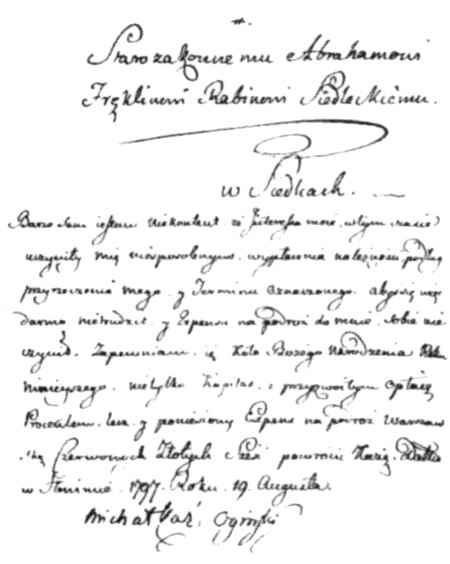 Starozakonnemu Abrahamowi
Fręklinowi Rabinowi Siedleckiemu.
w Siedlcach.
Barzo Sam iestem niekontent że Interessa moie w tym czasie
uczyniły mię niesposobnym wypłacenia należności podług
przyrzeczenia mego y Terminu oznaczonego abyś się więc
darmo nietrudził y Expensu na podroż do mnie sobie nie
czynił. Zapewniam ię koło Bożego Narodzenia Rku
ninieyszego nietylko Kapitał z przyzwoitym opłacę
Procentem lecz y poniesiony Expens na podroż Warszaw
ską Czerwonych Złotych Sześć powrocić Każę
w Słonimie 1797. Roku 19 Augusta
Michał Xże Ogiński